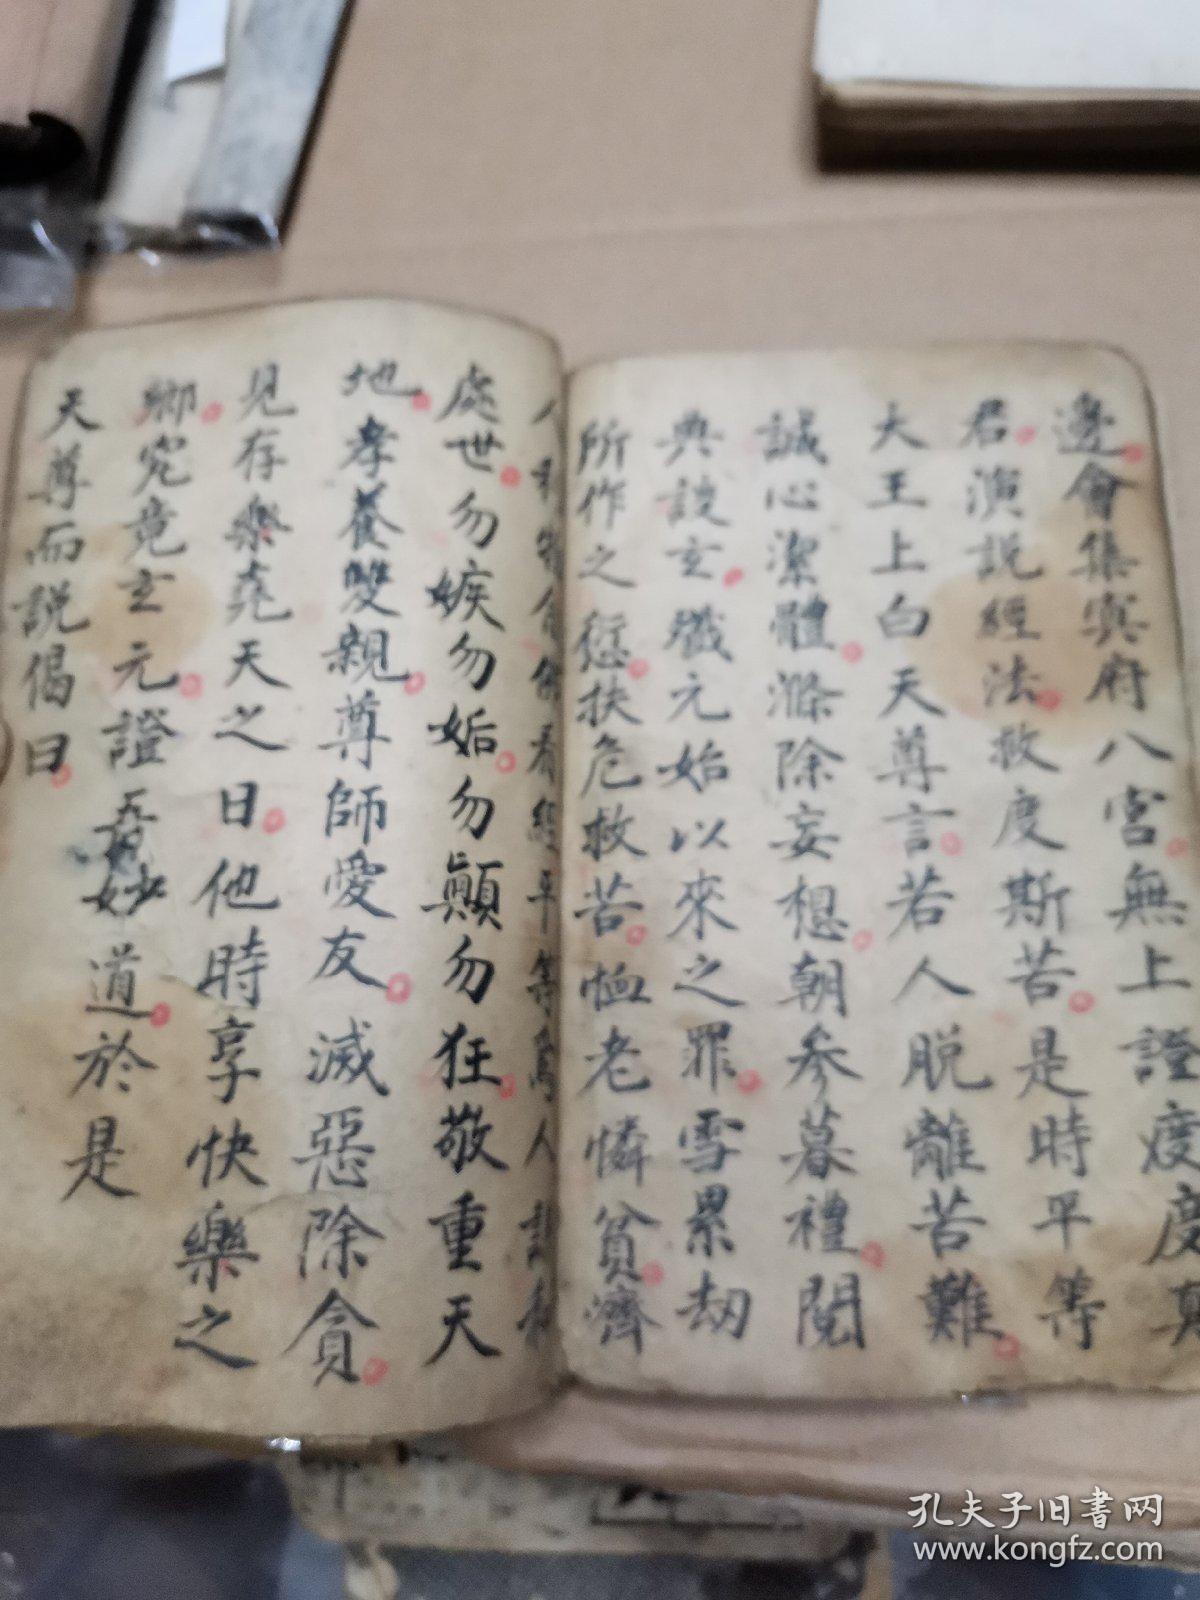 邊會集冥府八宮無上證度度真
君演說經法救度斯苦是時平等
大王上白天尊言若人脱離苦難
誠心潔體滌除妄想朝參暮禮閱
典談玄懺元始以來之罪雪累劫
所作之愆扶危救苦恤老憐貧濟
人利物念佛看經平等為人
處世勿嫉勿妬勿顛勿狂敬重天
地孝養雙親尊師愛友滅惡除貪
見存樂堯天之日他時享快樂之
鄉究竟玄元證吾妙道於是
天尊而説偈曰
孔夫子旧书网
www.kongfz.com